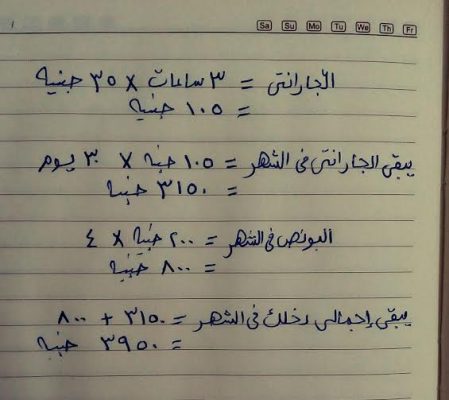 Sa Su Mo Tu We Th Fr
الجارانتى = ٣ ساعات × ٣٥ جنيه
= ١٠٥ جنيه
يبقى الجارانتى فى الشهر = ١٠٥ جنيه × ٣٠ يوم
= ٣١٥٠ جنيه
البونص فى الشهر = ٢٠٠ جنيه × ٤
= ٨٠٠ جنيه
يبقى إجمالى دخلك فى الشهر = ٣١٥٠ + ٨٠٠
= ٣٩٥٠ جنيه